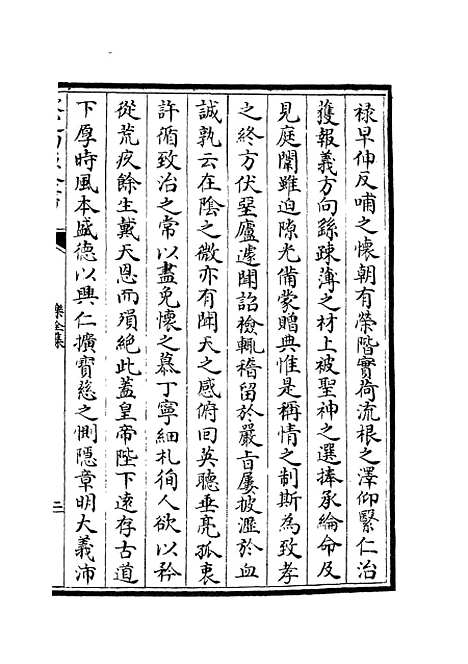 祿早伸反哺之懷朝有榮階實荷流根之澤仰繄仁治
獲報義方向繇疎薄之材上被聖神之選捧承綸命及
見庭闈雖迫隙光備蒙贈典惟是稱情之制斯為致孝
之終方伏堊廬遽聞詔檢輒稽留於嚴旨屢披瀝於血
誠孰云在陰之微亦有聞天之感俯回英聽垂亮孤衷
許循致治之常以盡免懷之慕丁寧細札徇人欲以矜
從荒疚餘生戴天恩而殞絕此蓋皇帝陛下逺存古道
下厚時風本盛德以興仁擴寳慈之惻隠章明大義沛
樂全集
二